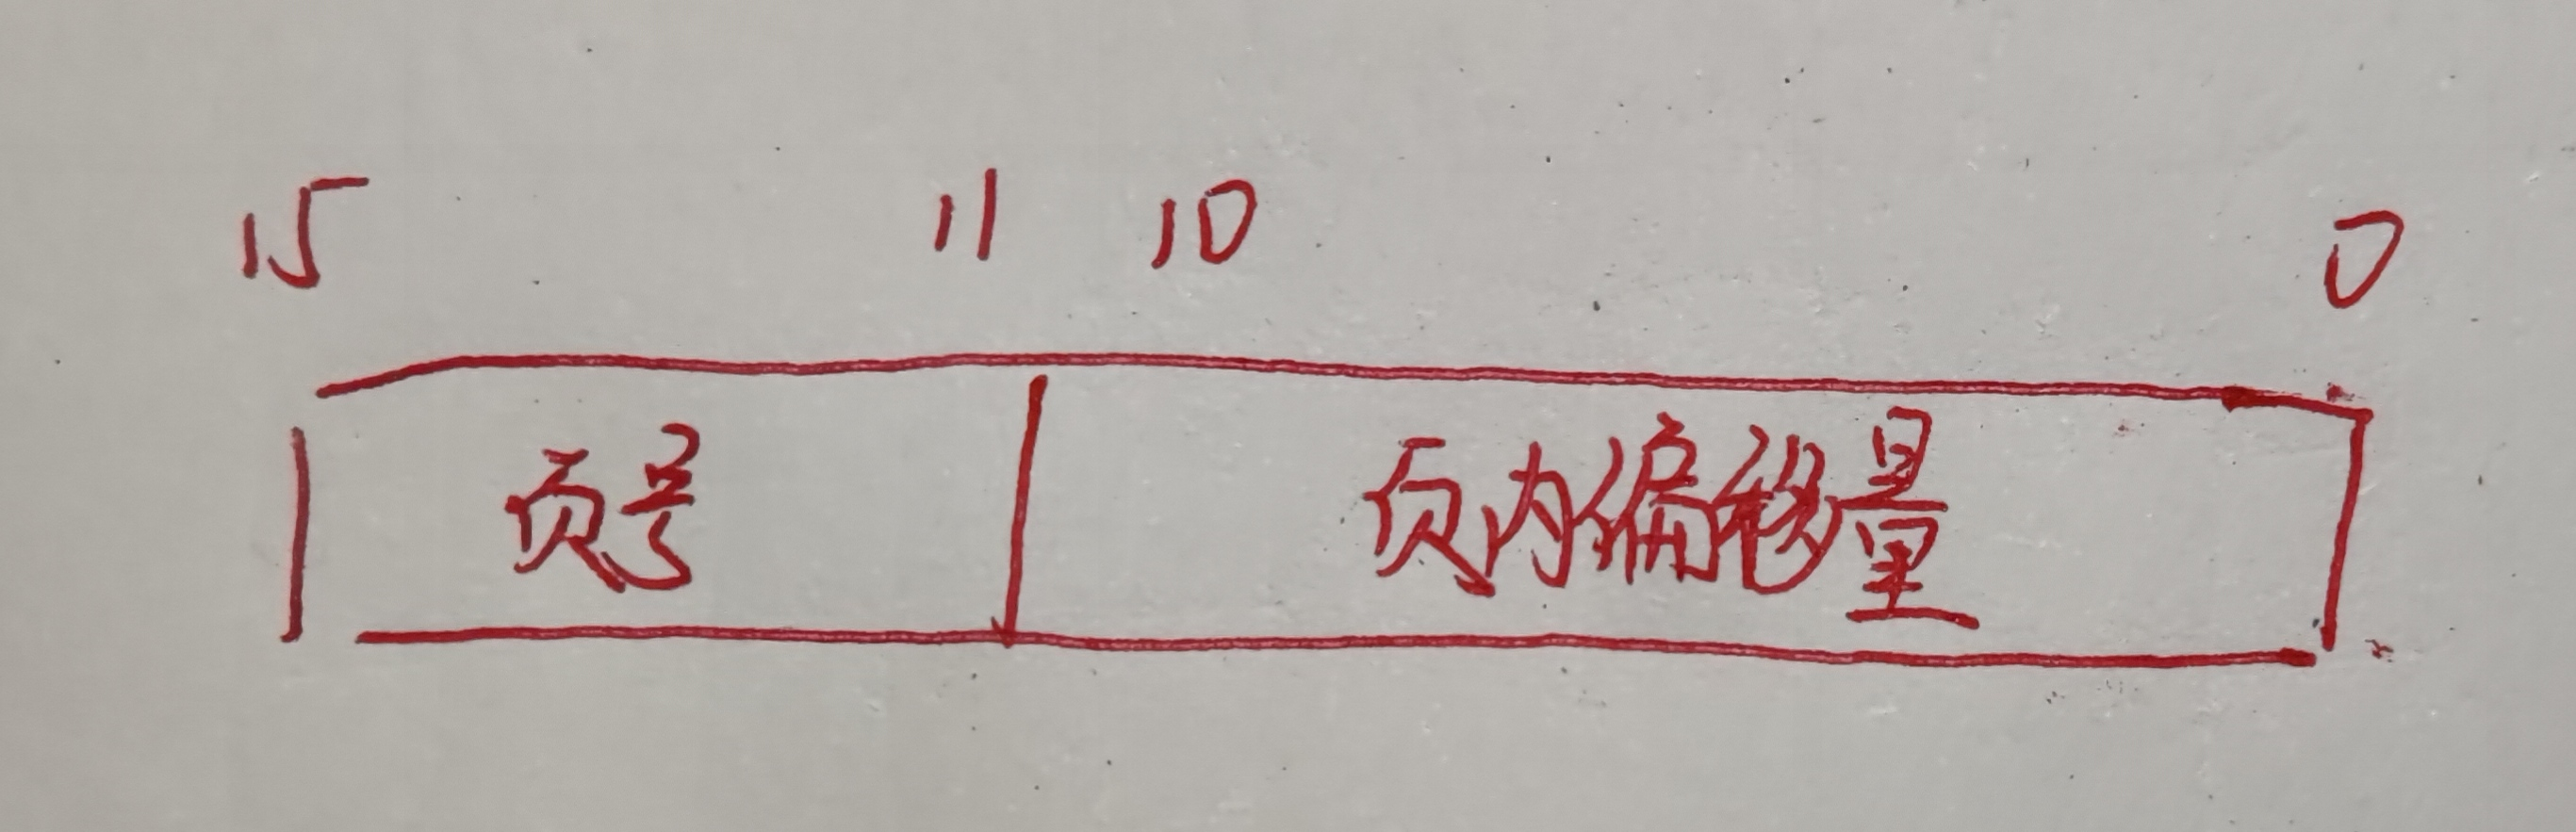 15 11 10 0
页号 页内偏移量